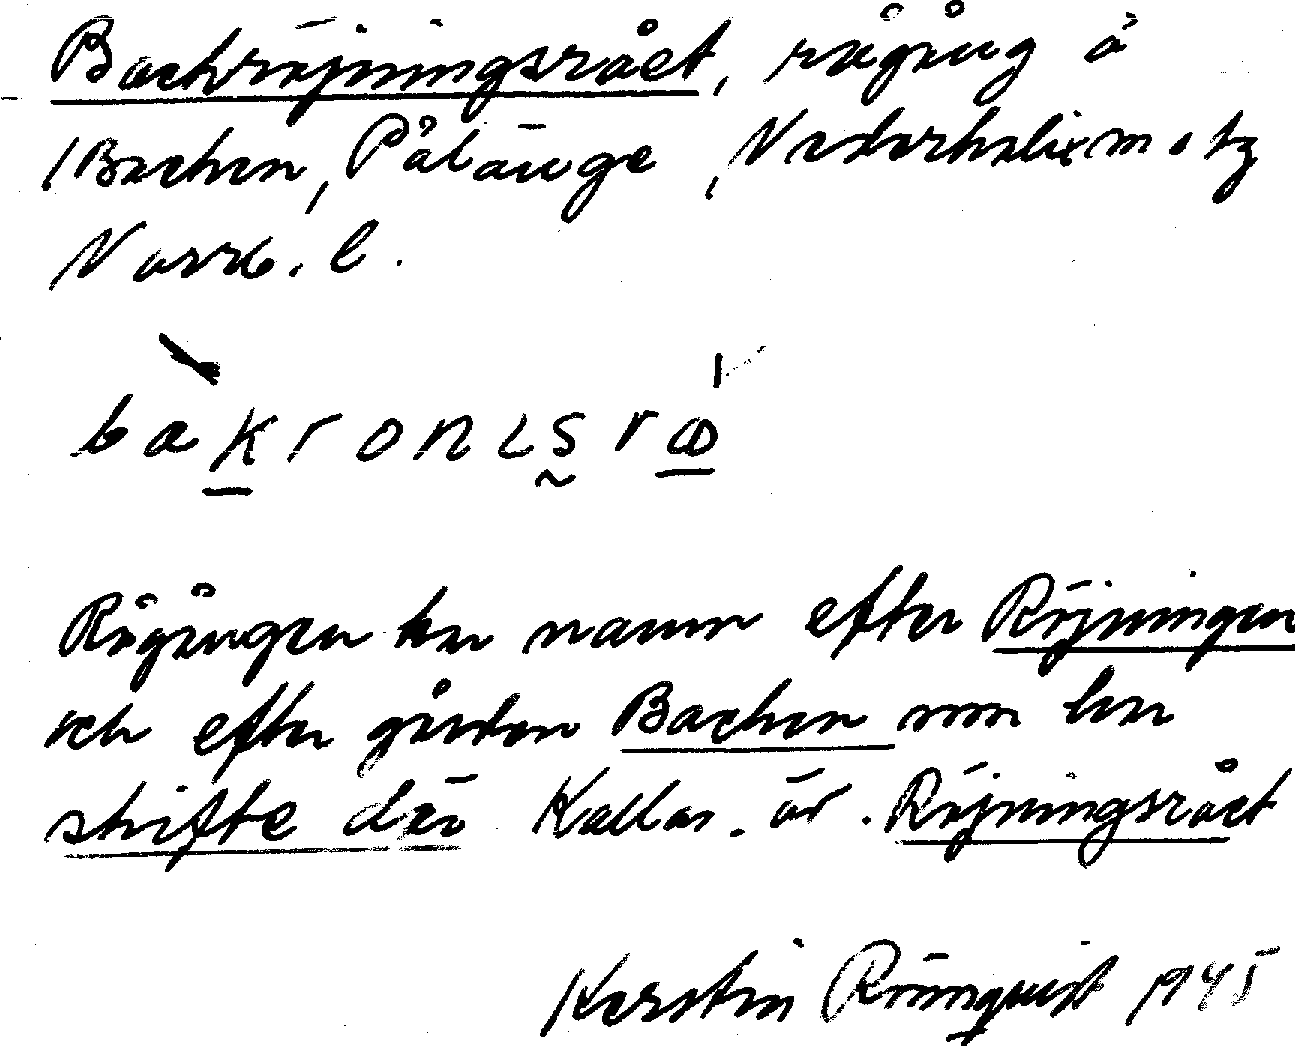 Backröjningsrået, rågång å
Backen, Pålänge, Nederkalix m. o. tg
Norrb. l.
bakronısrω
Rågången har namn efter Röjningen
och efter gården Backen som har
skifte där Kallas. är. Röjningsrået
Kerstin Rönnqvist 1945